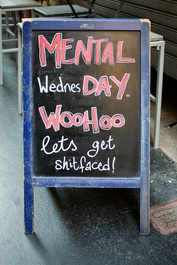 MENTAL
WednesDAY.
WOOHOO
lets get
shitfaced!